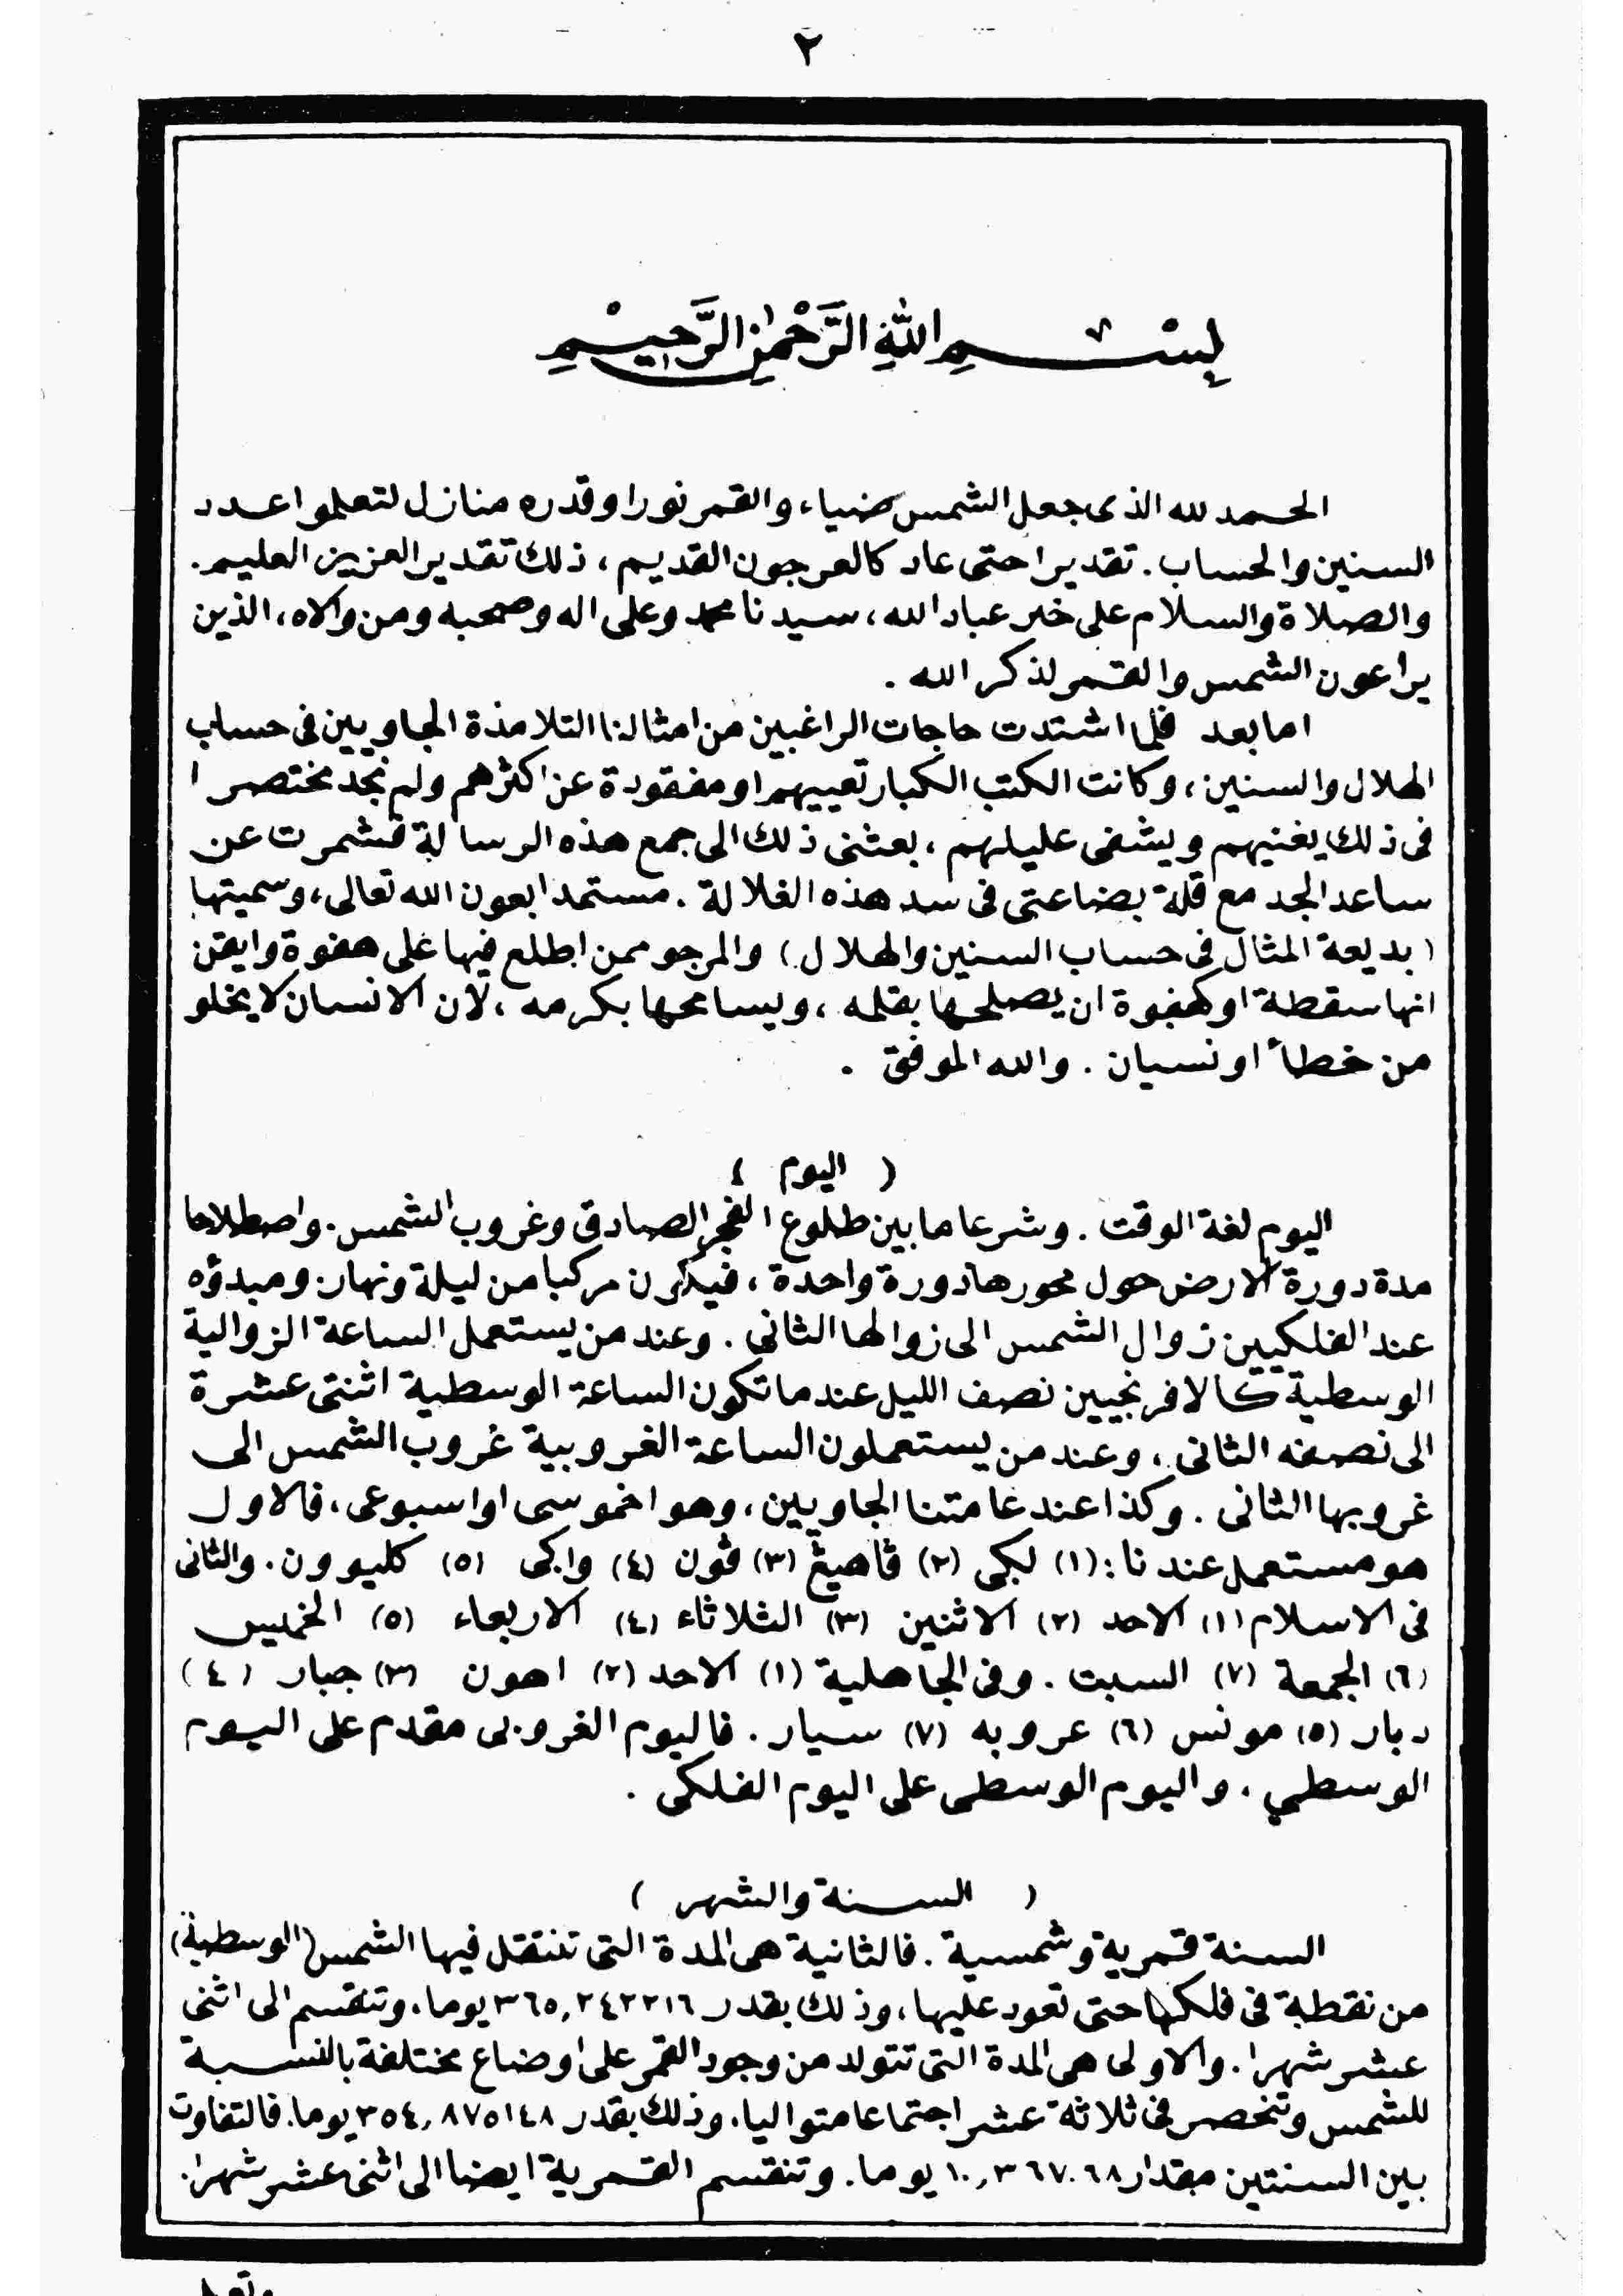 ٢
بِسْمِ اللهِ الرَّحْمٰنِ الرَّحِيْمِ
الحمد لله الذى جعل الشمس ضياء، والقمر نورا وقدره منازل لتعلموا عدد
السنين والحساب. تقديرا حتى عاد كالعرجون القديم، ذلك تقدير العزيز العليم.
والصلاة والسلام على خير عباد الله، سيدنا محمد وعلى اله وصحبه ومن والاه، الذين
يراعون الشمس والقمر لذكر الله .
اما بعد فلما اشتدت حاجات الراغبين من امثالنا التلامذة الجاويين فى حساب
الهلال والسنين، وكانت الكتب الكبار تعييهم او مفقودة عن اكثرهم ولم نجد مختصرا
فى ذلك يغنيهم ويشفى عليلهم، بعثنى ذلك الى جمع هذه الرسالة فشمرت عن
ساعد الجد مع قلة بضاعتى فى سد هذه الغلالة. مستمدا بعون الله تعالى، وسميتها
(بديعة المثال فى حساب السنين والهلال) والمرجو ممن اطلع فيها على هفوة وايقن
انها سقطة او كهفوة ان يصلحها بقلمه، ويسامحها بكرمه، لان الانسان لا يخلو
من خطأ او نسيان. والله الموفق .
( اليوم )
اليوم لغة الوقت. وشرعا ما بين طلوع الفجر الصادق وغروب الشمس. واصطلاحا
مدة دورة الارض حول محورها دورة واحدة، فيكون مركبا من ليلة ونهار. ومبدؤه
عند الفلكيين زوال الشمس الى زوالها الثانى. وعند من يستعمل الساعة الزوالية
الوسطية كالافرنجيين نصف الليل عندما تكون الساعة الوسطية اثنتى عشرة
الى نصفه الثانى، وعند من يستعملون الساعة الغروبية غروب الشمس الى
غروبها الثانى. وكذا عند عامتنا الجاويين، وهو اخموسى او اسبوعى، فالاول
هو مستعمل عندنا: (١) لكى (٢) ڤاهيڠ (٣) ڤون (٤) واكى (٥) كليوون. والثانى
فى الاسلام (١) الاحد (٢) الاثنين (٣) الثلاثاء (٤) الاربعاء (٥) الخميس
(٦) الجمعة (٧) السبت. وفى الجاهلية (١) الاحد (٢) اهون (٣) جبار (٤)
دبار (٥) مونس (٦) عروبه (٧) سيار. فاليوم الغروبى مقدم على اليوم
الوسطي، واليوم الوسطى على اليوم الفلكى .
( السنة والشهر )
السنة قمرية وشمسية. فالثانية هى المدة التى تنتقل فيها الشمس (الوسطية)
من نقطة فى فلكها حتى تعود عليها، وذلك بقدر ٣٦٥,٢٤٢٢١٦ يوما، وتنقسم الى اثنى
عشر شهرا. والاولى هى المدة التى تتولد من وجود القمر على اوضاع مختلفة بالنسبة
للشمس وتنحصر فى ثلاثة عشر اجتماعا متواليا، وذلك بقدر ٣٥٤,٨٧٥١٤٨ يوما. فالتفاوت
بين السنتين مقدار ١٠,٣٦٧٠٦٨ يوما. وتنقسم القمرية ايضا الى اثنى عشر شهرا.